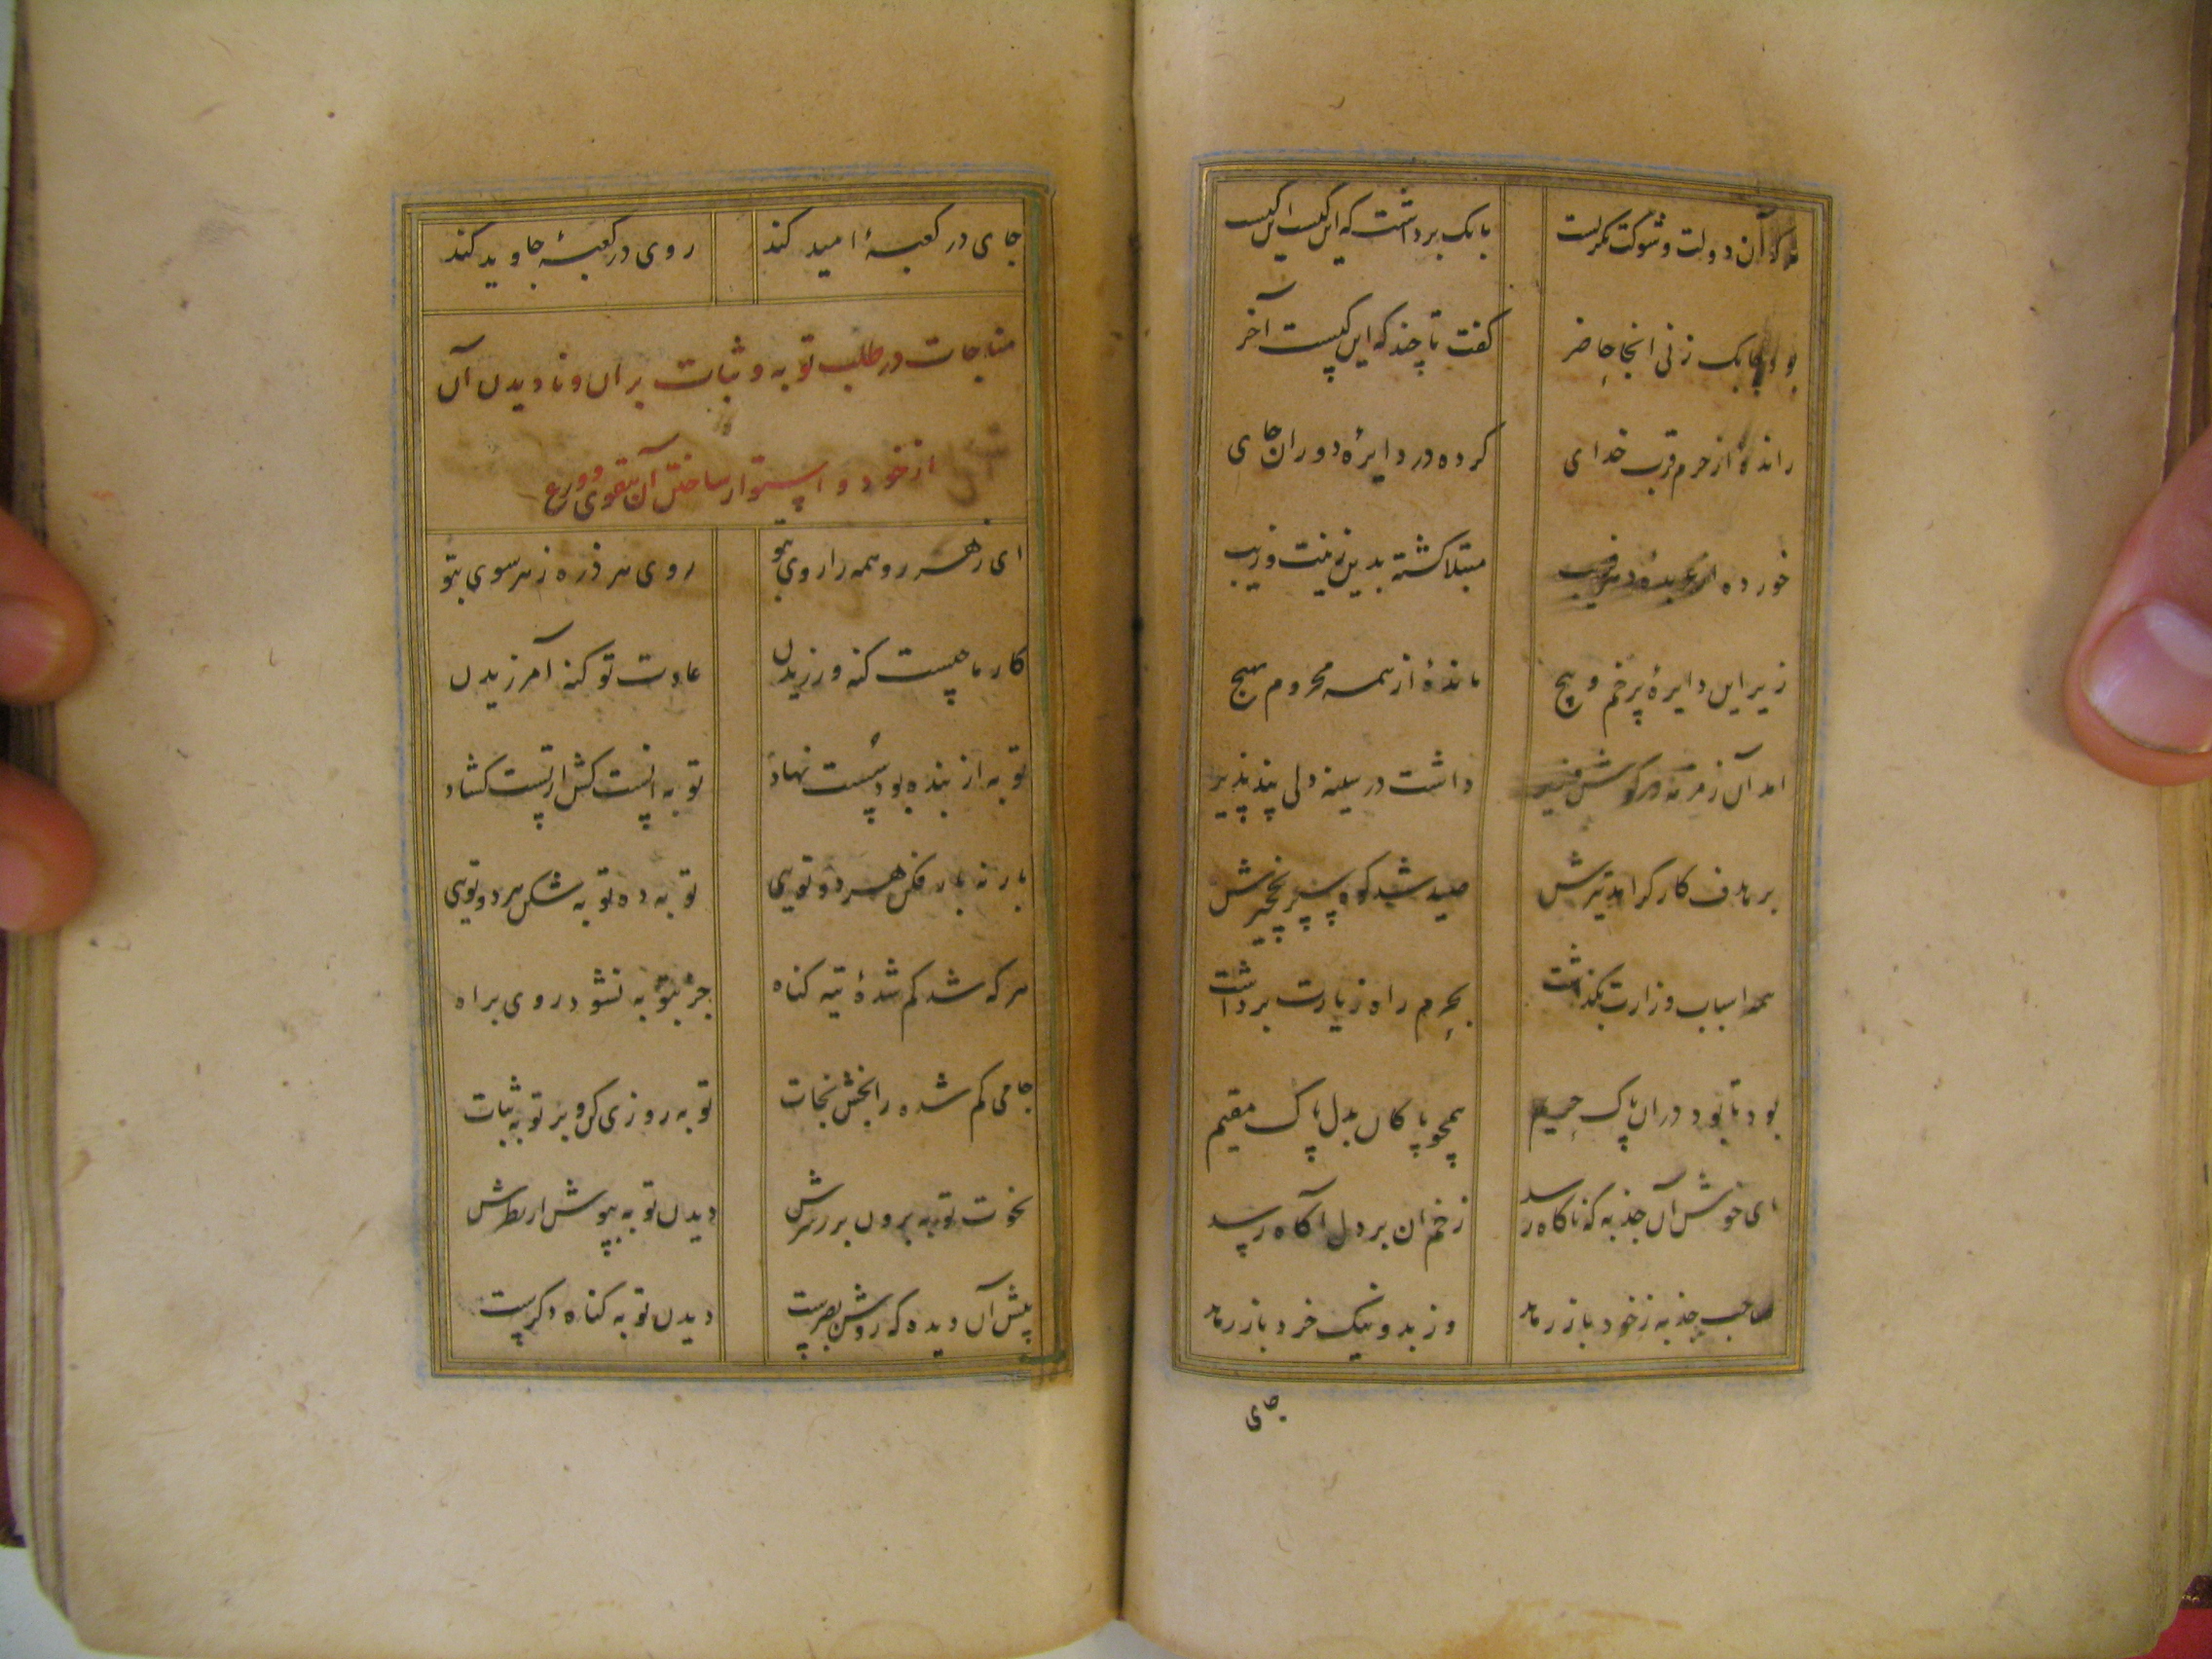 هر که آن دولت و شوکت نکریست بانک برداشت که این کیست این کیست
بود چابک زنی انجا حاضر کفت تا چند که این کیست آخر
راندهٔ از حرم قرب خدای کرده در دایرهٔ دوران جای
خورده از شعبده دهر فریب مبتلا کشته بدین زینت و زیب
زیر این دایرهٔ پر خم و پیچ ماندهٔ از همه محروم بهیچ
امد آن زمزمه در کوش وزیر داشت در سینه دلی پند پذیر
بر هدف کارکر امد تیرش صید شد کوه سپر نخجیرش
همه اسباب وزارت بکذاشت بحرم راه زیارت برداشت
بود تا بود دران پاک حریم همچو پاکان بدل پاک مقیم
ای خوش آن جذبه که ناکاه رسد زخم ان بر دل آکاه رسد
صاحب جذبه ز خود باز رهد وز بد و نیک خرد باز رهد
جای
جای در کعبهٔ امید کند روی در کعبهٔ جاوید کند
مناجات در طلب توبه و ثبات بران و نادیدن آن
از خود و استوار ساختن آن بتقوی و ورع
ای ز هر رو همه را روی بتو روی هر ذره ز هر سوی بتو
کار ما چیست کنه ورزیدن عادت تو کنه آمرزیدن
توبه از بنده بود سست نهاد توبه انست کش از تست کشاد
بار نه بار فکن هر دو تویی توبه ده توبه شکن هر دو تویی
هر که شد کم شدهٔ تیه کناه جز بتوبه نشود روی براه
جامی کم شده را بخش نجات توبه روزی کن و بر توبه ثبات
نخوت توبه برون بر ز سرش دیدن توبه بپوش از نظرش
پیش آن دیده که روشن بصرست دیدن توبه کناه دکرست